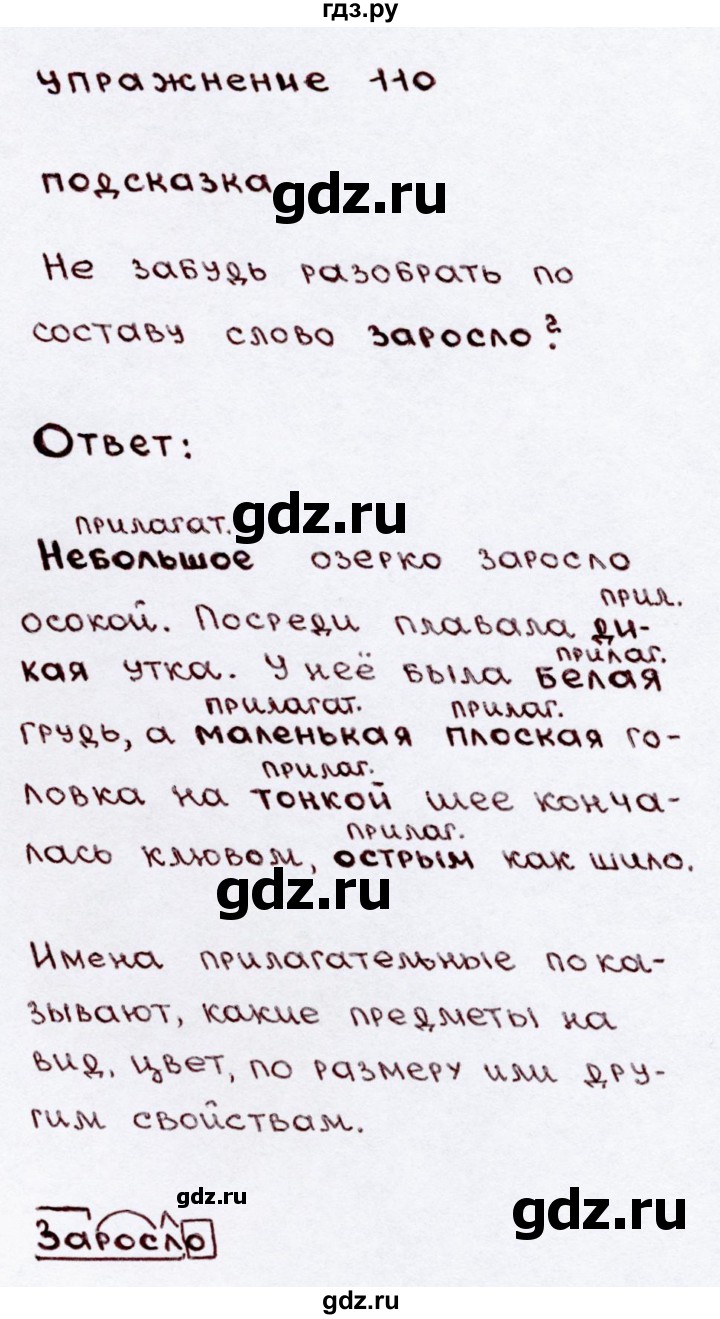 гдз.ру
упражнение 110
подсказка
gdz.ru
Не забудь разобрать по
составу слово заросло?
Ответ:
gdz.ru
прилагат.
Небольшое озерко заросло
прил.
осокой. Посреди плавала ди-
прилаг.
кая утка. У неё была белая
прилагат. прилаг.
грудь, а маленькая плоская го-
прилаг.
ловка на тонкой шее конча-
прилаг.
лась клювом, острым как шило.
gdz.ru
Имена прилагательные пока-
зывают, какие предметы на
вид, цвет, по размеру или дру-
гим свойствам.
gdz.ru
gdz.ru
Заросло
gdz.ru